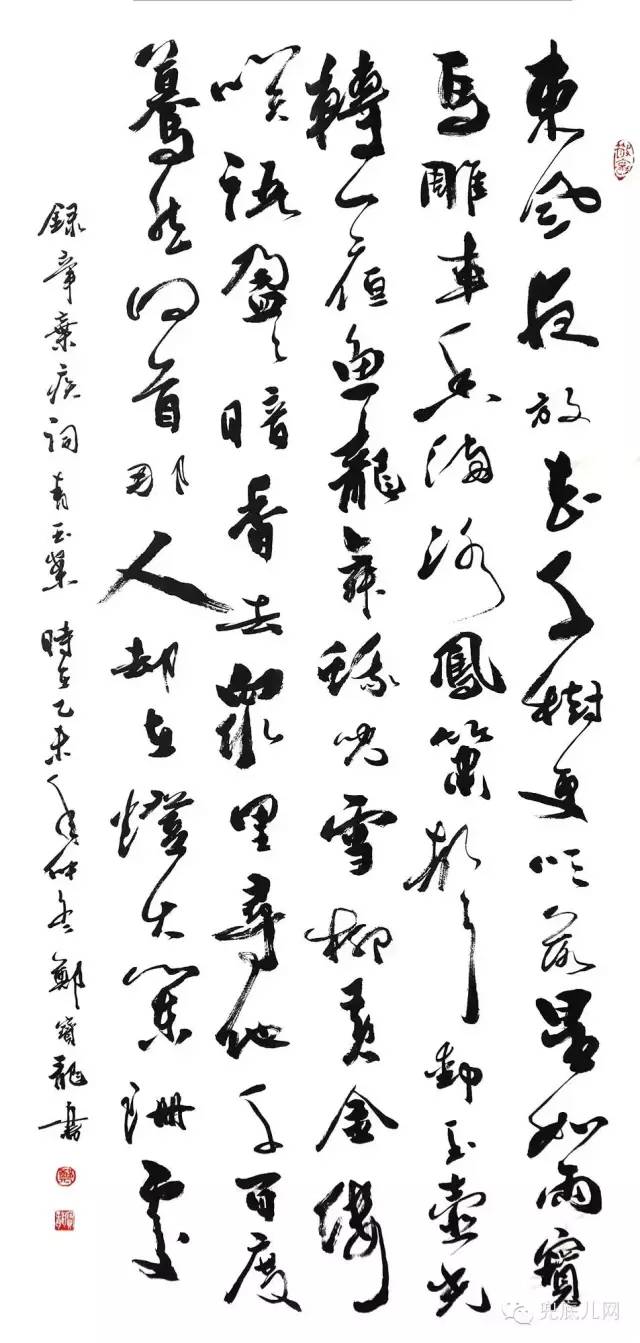 東風夜放花千樹更吹落星如雨寶
馬雕車香滿路鳳簫聲動玉壺光
轉一夜魚龍舞蛾兒雪柳黃金縷
咲語盈々暗香去眾里尋他千百度
驀然回首那人却在燈火闌珊處
録辛棄疾詞青玉案 時在乙未年仲冬鄭寶龍書
兜底儿网